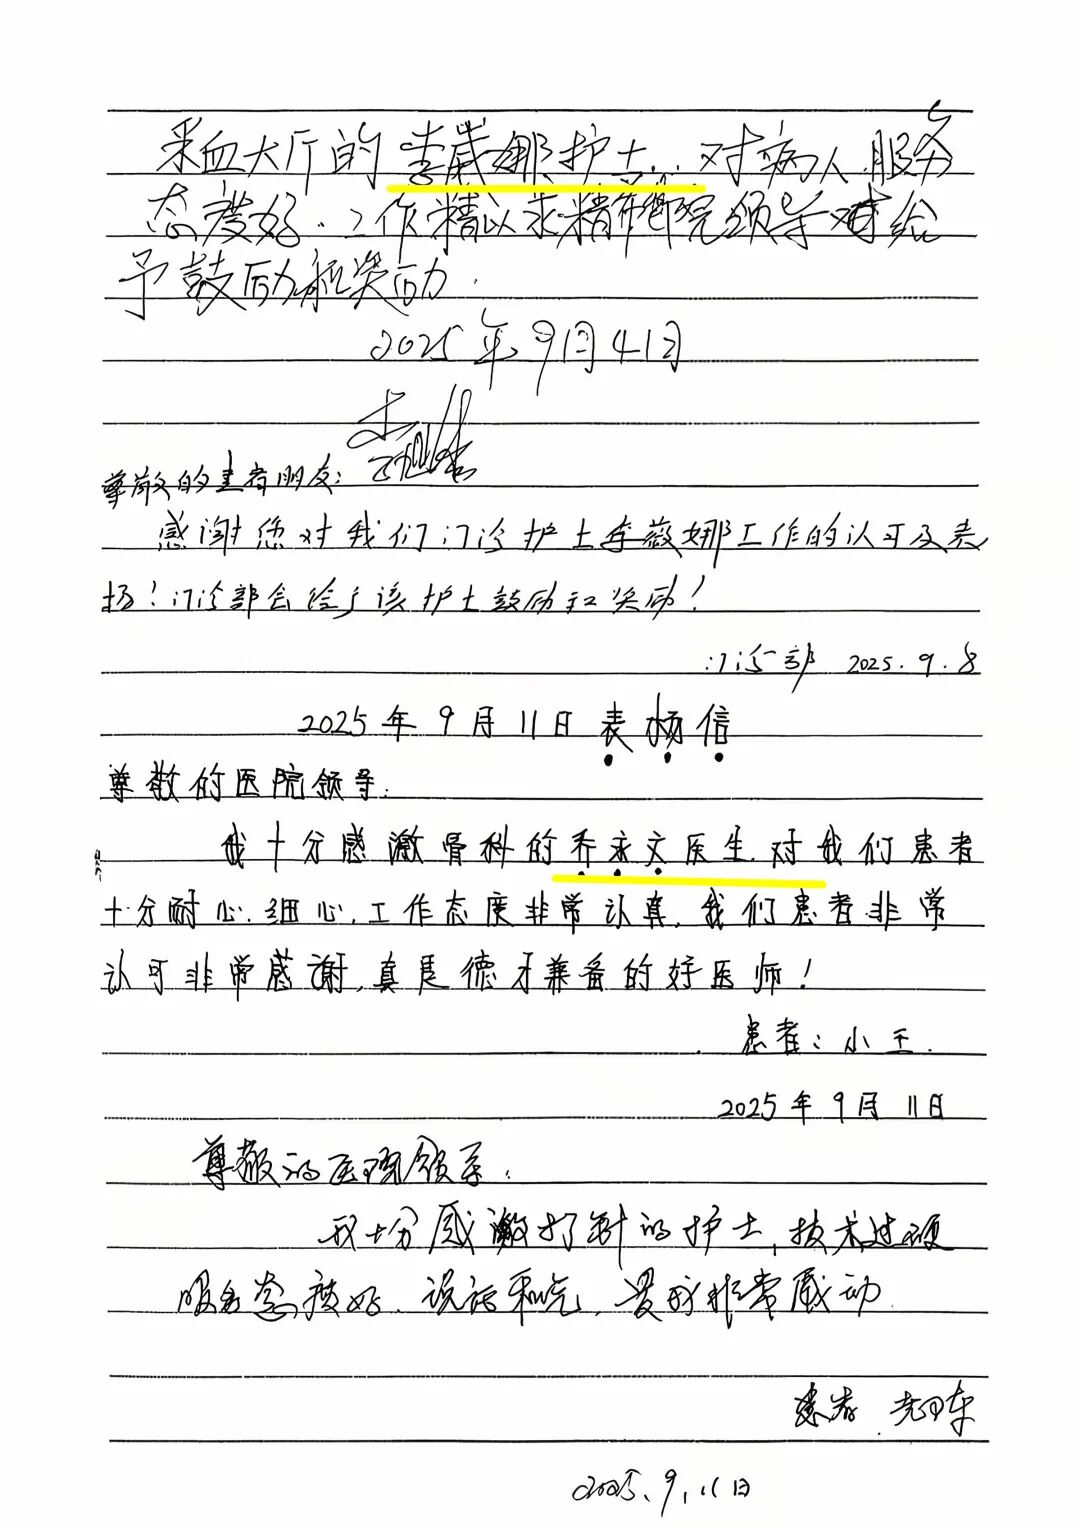 采血大厅的李薇娜护士对病人服务
态度好．工作精以求精希望院领导给
予鼓励和奖励．
2025年9月4日
尊敬的患者朋友：
感谢您对我们门诊护士李薇娜工作的认可及表
扬！门诊部会给予该护士鼓励和奖励！
门诊部 2025.9.8
2025年9月11日表扬信
尊敬的医院领导：
我十分感激骨科的乔永文医生．对我们患者
十分耐心．细心．工作态度非常认真．我们患者非常
认可非常感谢，真是德才兼备的好医师！
患者：小王．
2025年9月11日
尊敬的医院领导：
我十分感激打针的护士，技术过硬
服务态度好．说话和气，
我非常感动
患者
2025.9.11日